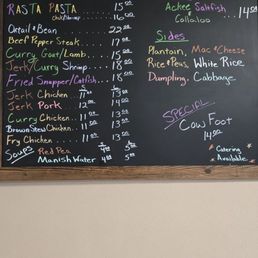 Rasta Pasta 15.00
Chix/Shrimp 16.00
Oxtail & Bean ... 22.00
Beef Pepper Steak ... 17.00
Curry Goat/Lamb 15.00
Jerk/Curry Shrimp ... 18.00
Fried Snapper/Catfish.. 18.00
Jerk Chicken ... 11.00 13.00
Jerk Pork ... 12.00 14.00
Curry Chicken .. 11.00 13.00
Brown Stew Chicken.. 11.00 13.00
Fry Chicken ... 11.00 13.00
Soups Red Pea
Manish Water 4.00 5.00
Ackee Saltfish
Callaloo 14.00
Sides
Plantain, Mac & Cheese
Rice & Peas, White Rice
Dumpling, Cabbage.
Special
Cow Foot
14.00
Catering
Available